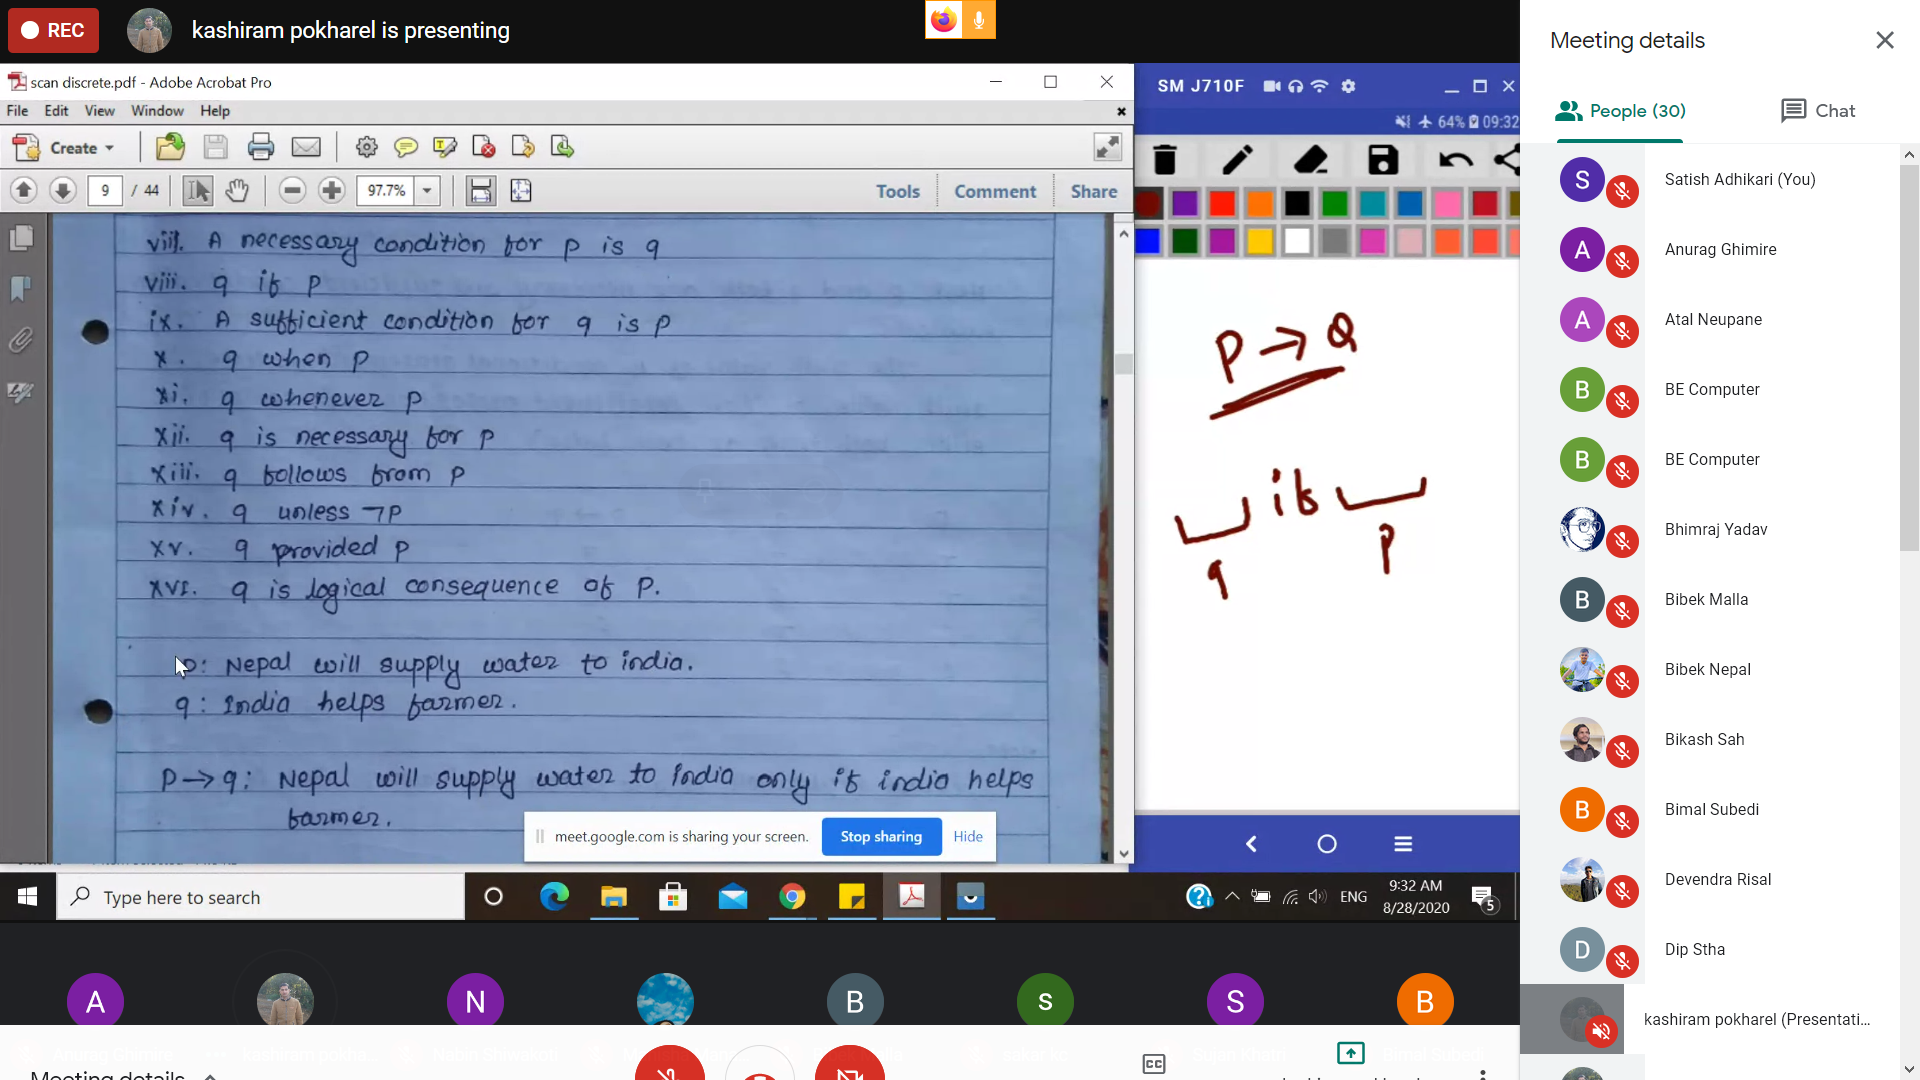 REC
kashiram pokharel is presenting
scan discrete.pdf - Adobe Acrobat Pro
File Edit View Window Help
Create
9 / 44
97.7%
Tools Comment Share
viii. A necessary condition for p is q
viii. q if p
ix. A sufficient condition for q is p
x. q when p
xi. q whenever p
xii. q is necessary for p
xiii. q follows from p
xiv. q unless ¬p
xv. q provided p
xvi. q is logical consequence of p.
p: Nepal will supply water to india.
q: India helps farmer.
p → q: Nepal will supply water to India only if india helps
farmer.
meet.google.com is sharing your screen. Stop sharing Hide
SM J710F
64% 09:32
P → Q
if
q p
Type here to search
ENG
9:32 AM
8/28/2020
5
A N B S S B
Meeting details
Meeting details
People (30) Chat
S Satish Adhikari (You)
A Anurag Ghimire
A Atal Neupane
B BE Computer
B BE Computer
Bhimraj Yadav
B Bibek Malla
Bibek Nepal
Bikash Sah
B Bimal Subedi
Devendra Risal
D Dip Stha
kashiram pokharel (Presentati...
CC